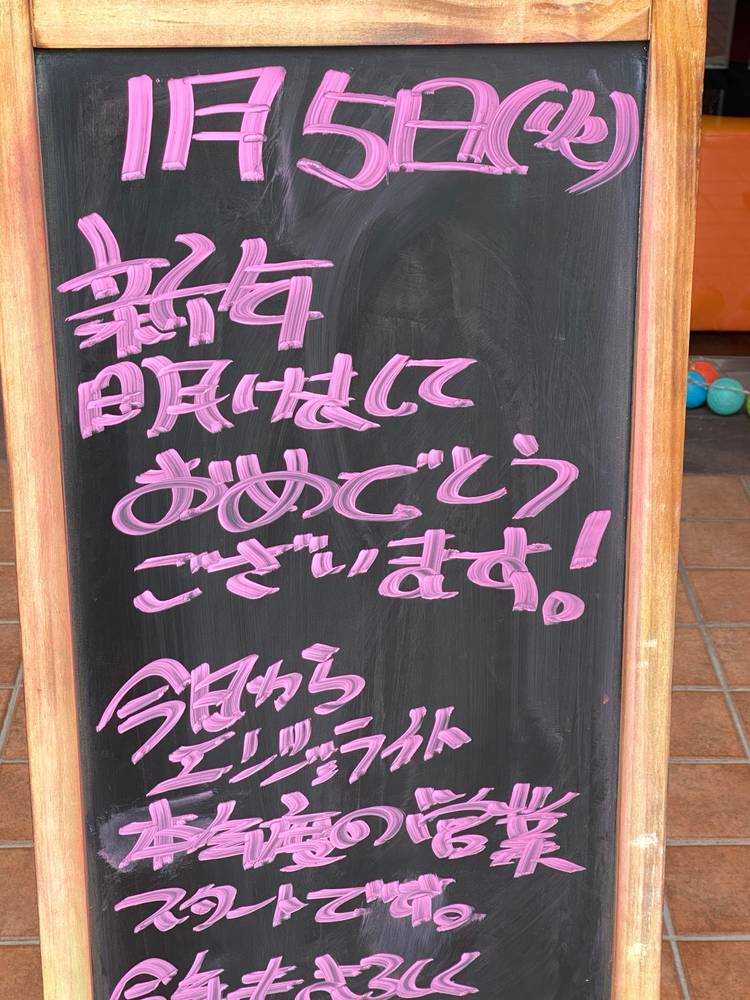 1月5日(火)
新年
明けまして
おめでとう
ございます!
今日から
エンジェライト
本年度の営業
スタートです。
今年もよろしく